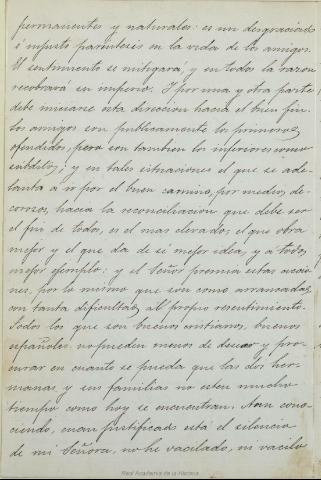 permanentes y naturales: es un desgraciado
é impío paréntesis en la vida de los amigos.
El sentimiento se mitigará, y en todos la razon
recobrará su imperio. Y por una y otra parte
debe iniciarse esta direccion hacia el buen fin.
Los amigos son publicamente los primeros
ofendidos, pero son tambien los inferiores como
subditos; y en tales situaciones el que se ade-
lanta á ir por el buen camino, por medios de-
corosos, hacia la reconciliacion que debe ser
el fin de todos, es el mas elevado, el que obra
mejor y el que da de sí mejor idea, y á todos
mejor ejemplo: y el Señor premia estas accio-
nes, por lo mismo que son como arrancadas,
con tanta dificultad, al propio resentimiento.
Todos los que son buenos cristianos, buenos
españoles no pueden menos de desear y pro-
curar en cuanto se pueda que las dos her-
manas y sus familias no esten mucho
tiempo como hoy se encuentran. Aun cono-
ciendo, cuan justificado está el silencio
de mi Señora, no he vacilado, ni vacilo
Real Academia de la Historia